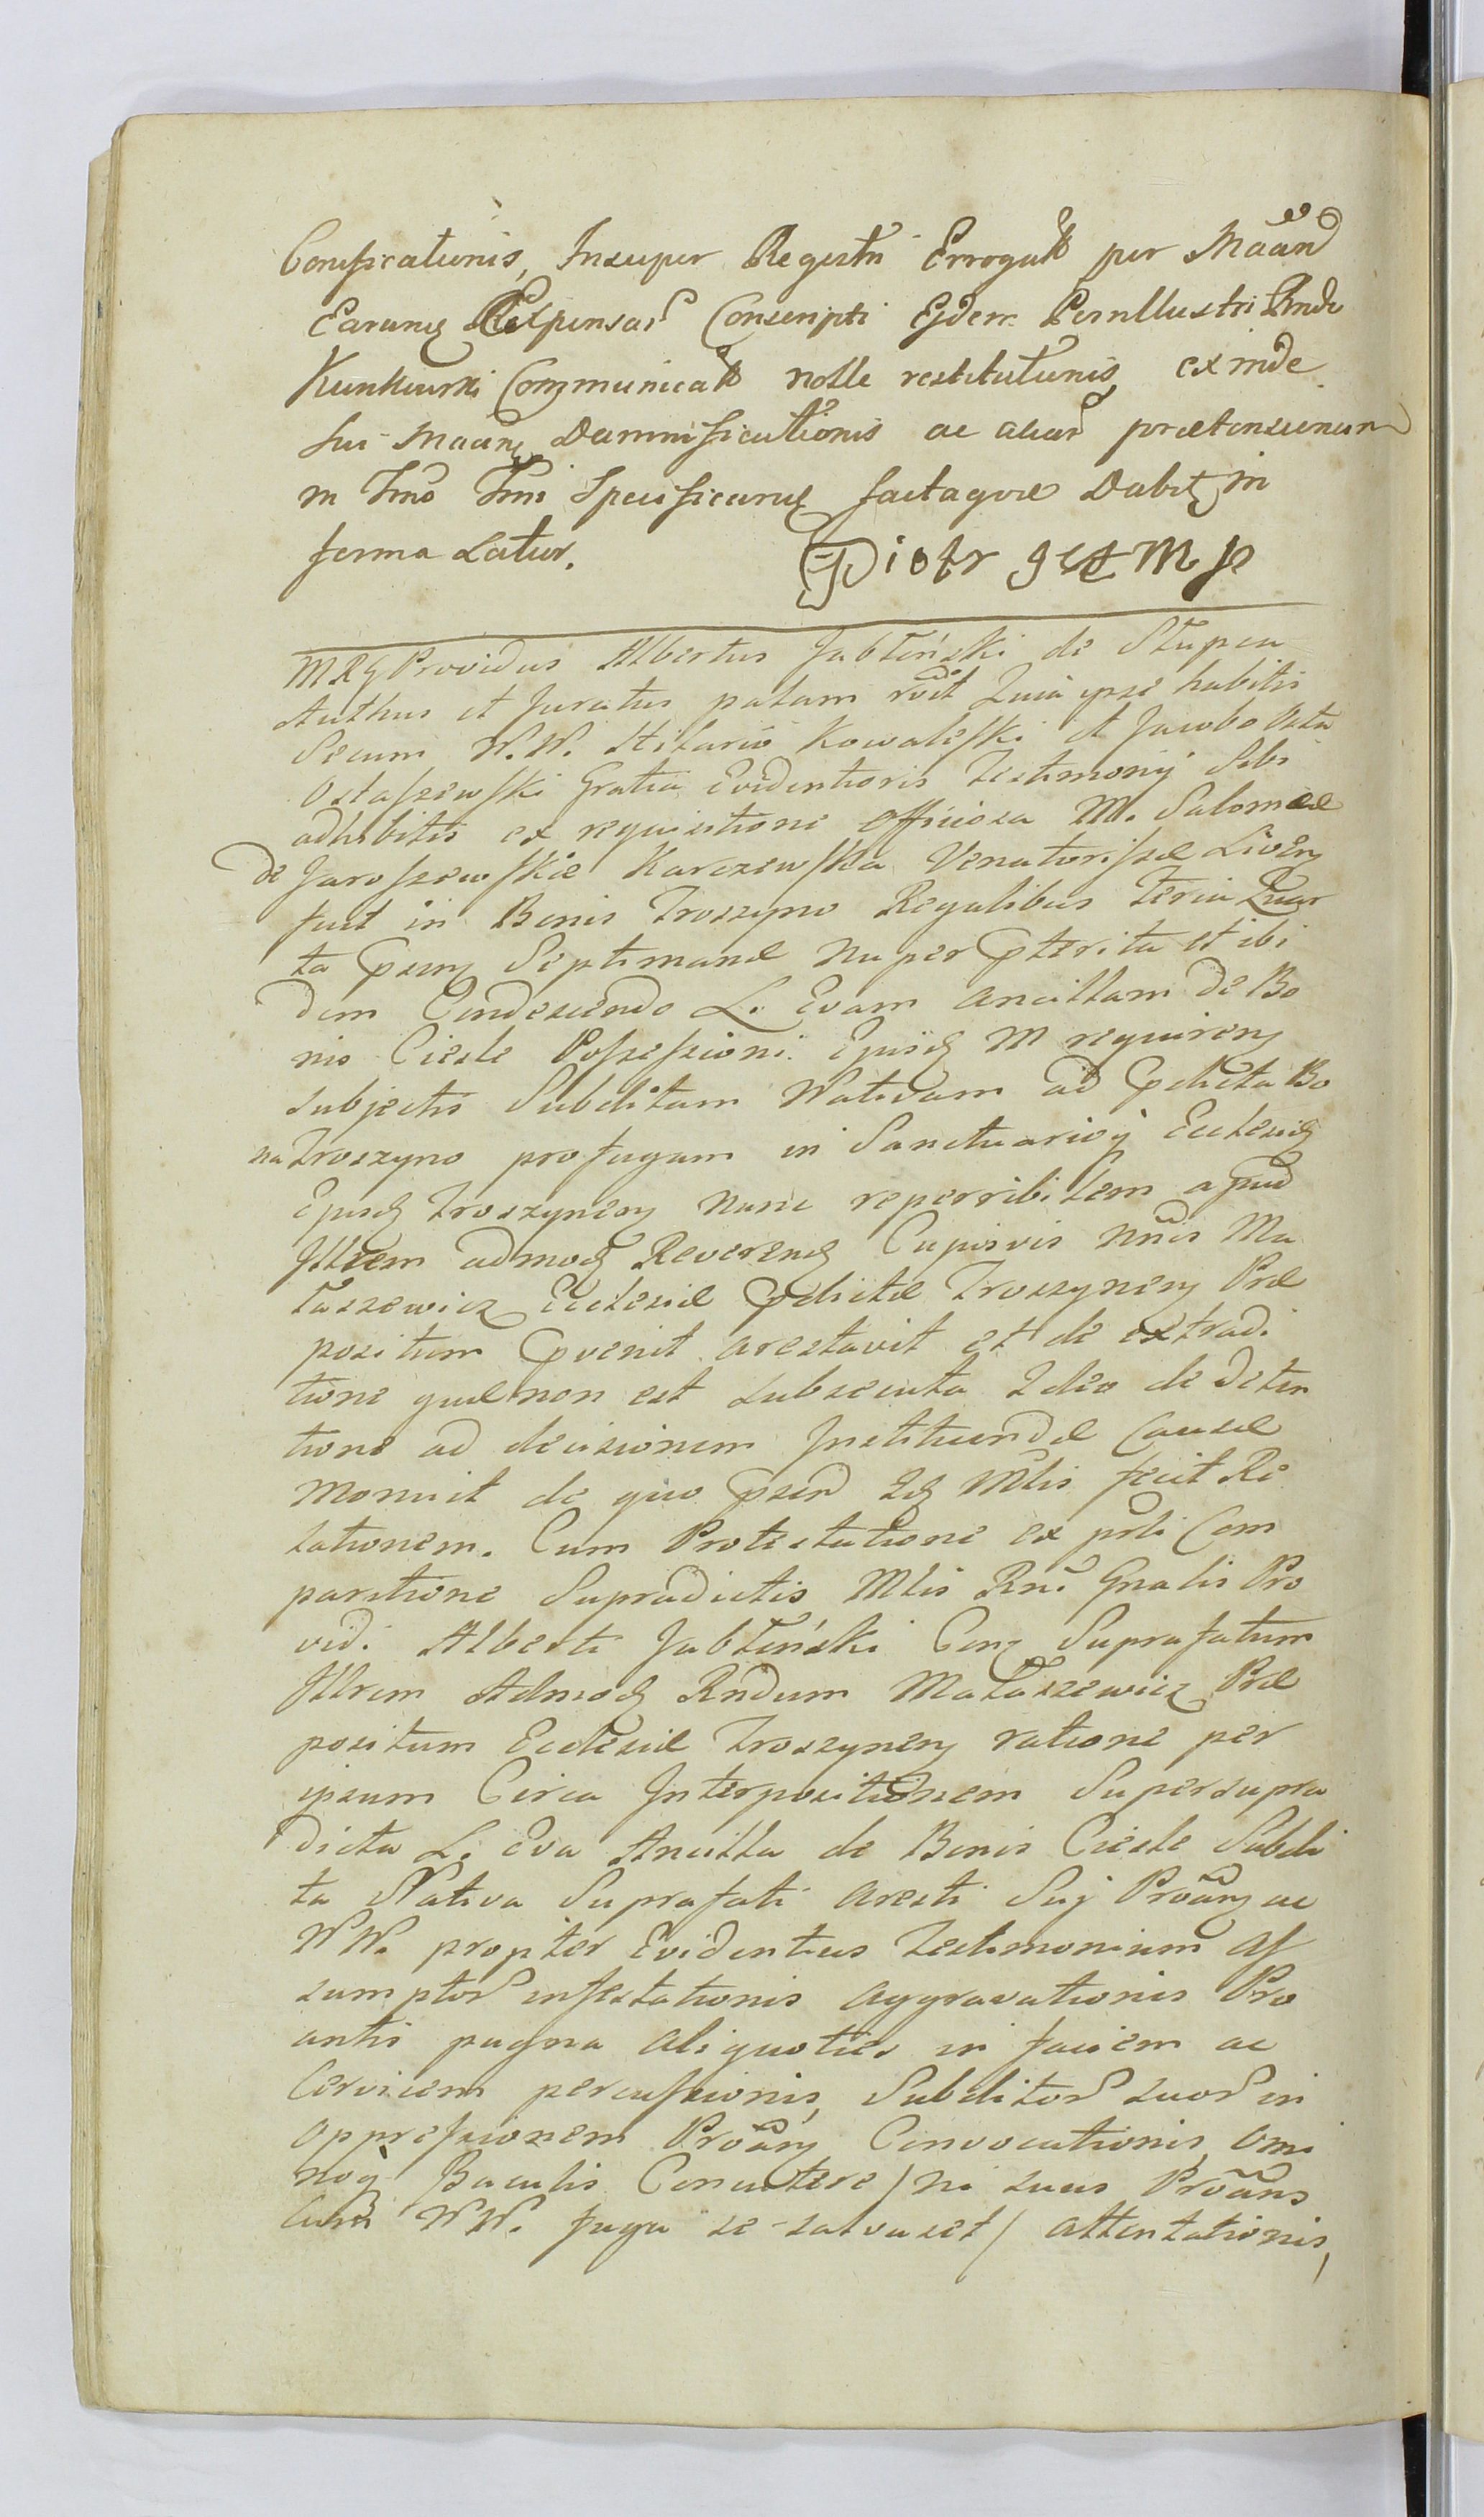 Conficationis, Insuper Regestri Errogat per Māān
Earumq Expensar Conscripti Ejdem Perillustri Rndo
Kunkowski Communicat nolle restitutionis, exinde
sui Māān Damnificationis ac aliar prætensionum
in Tmo Tmi Specificanq factaque Dabit in
forma Latior. Piotr mp
MRG Providus Albertus Jabłonski de Słupca
Authus et Juratus palam rōit Quia ipse habitis
Secum W.W. Hilario Kowalefski et Jacobo Osta
Ostaszewfki Gratia Evidentioris Testimonij Sibi
adhibitis ex requisitione officiosa M. Salomææ
de Jarofzewfkie Karczewfka Venatorifsæ Liven
fuit in Bonis Troszyno Regalibus Feria Quar
ta psen Septimanæ nuper pterita et ibi
dem Condescendo L. Evam ancillam de Bo
nis Ciesle Pofsefsioni Ejusd M requiren
subjectis Subditam Nativam ad pdicta Bo
na Troszyno profugam in Sanctuarioq Ecclesiæ
Ejusd Troszynen nunc reperribilem apud
Jllrem admod Reverend Cujusvis nnis Ma
taszewicz Ecclesiæ pdictæ Troszynen Præ
positum pvenit arestavit et de extradi
tione quæ non est subsecuta Ideo de deten
tione ad decisionem Instituendæ Causæ
Monuit de quo psen Id Mlis fecit Re
lationem. Cum Protestatione ex prti Com
paritione Supradictis Mlis Rni Gnalis Pro
vid. Alberti Jabłoński Con Suprafatum
Jllrem Admod Rndum Mataszewicz Præ
positum Ecclesiæ Troszynen ratione per
ipsum Circa Interpositionem Super supra
dicta L. Eva Ancilla de Bonis Ciesle Subdi
ta Nativa Suprafati aresti Sui Prōān ac
WW. propter Evidentius Testimonium af
sumptor infestationis aggravationis Pro
antis pugna aliquoties in faciem ac
Cervicem percufsionis, Subditor suor in
oppressionem Prōān Convocationis, omi
noq Baculis Concutere / ni suus Prōāns
cum WW. fuga se salvaset / attentationis,